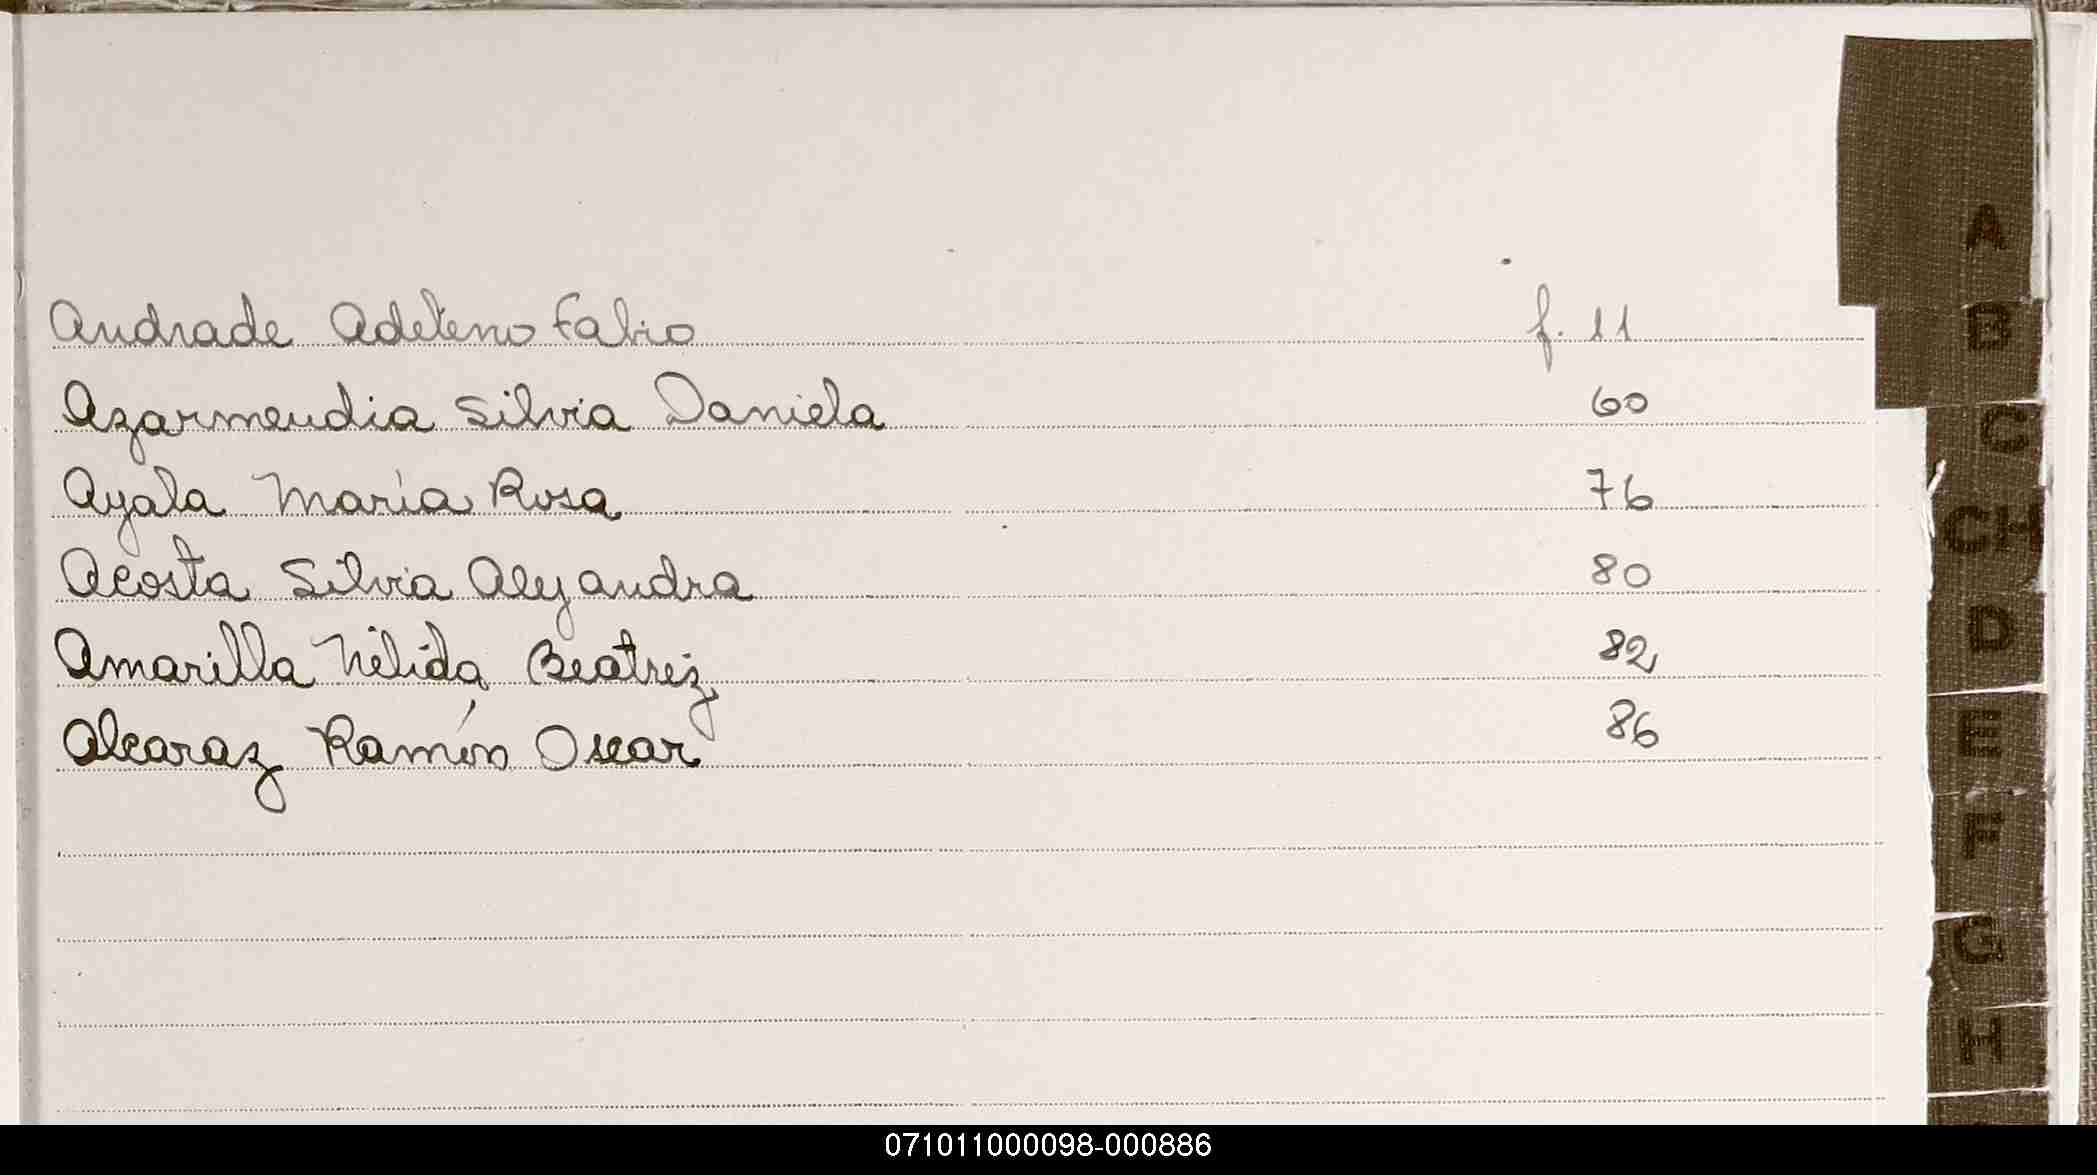 Andrade Adeleno Fabio f. 11
Azarmendia Silvia Daniela 60
Ayala María Rosa 76
Acosta Silvia Alejandra 80
Amarilla Nélida Beatriz 82
Alcaraz Ramón Oscar 86
A
B
C
CH
D
E
F
G
H
071011000098-000886